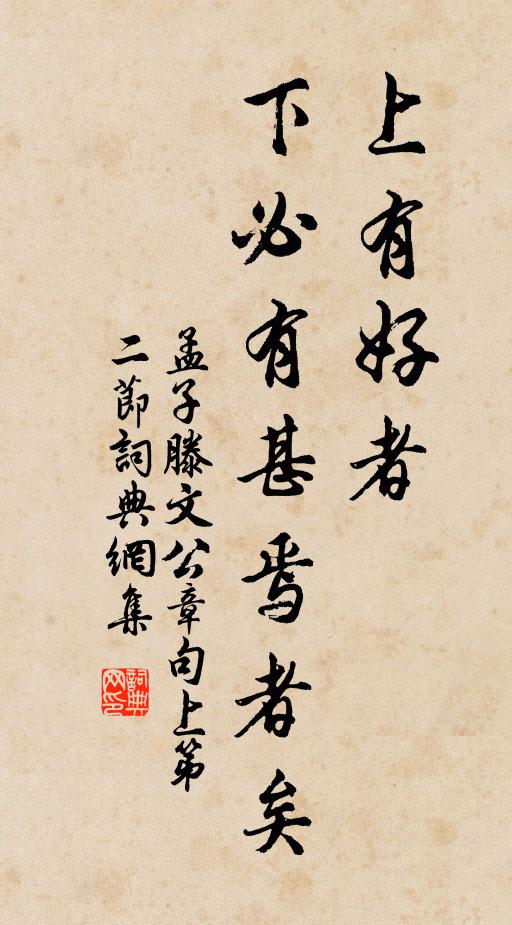 上有好者
下必有甚焉者矣
孟子滕文公章句上第
二節詞典網集
詞典
网印